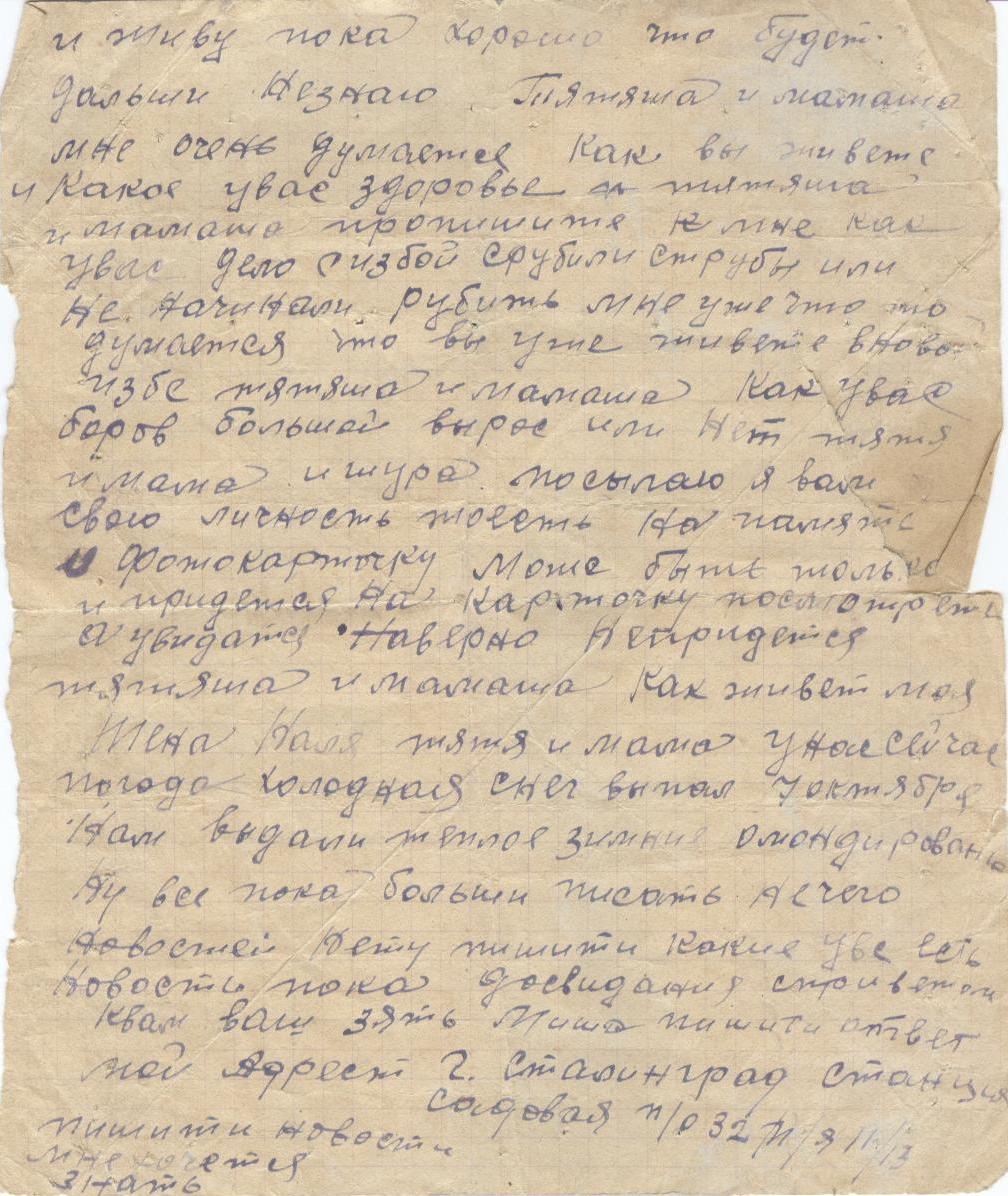 и живу пока хорошо что будет
дальши незнаю Тятяша и мамаша
мне очень думается Как вы живете
и Какое увас здоровье тятяша
и мамаша пропишите к мне как
увас дело сизбой срубили струбы или
не начинали рубить мне уже что то
думается что вы уже живете вново
избе тятяша и мамаша Как увас
боров большой вырос или Нет тятя
и мама и шура посылаю я вам
свою личность тоесть На память
фотокарточку може быть только
и придется На Карточку посмотреть
а увидатся Наверно Непридется
тятяша и мамаша Как живет моя
Жена Валя тятя и мама унас сейчас
погода холодная снег выпал 7 октября
Нам выдали теплое зимние омондировань
Ну все пока больши писать нечего
Новостей Нету пишити какие увс есть
Новости пока досвидания сприветом
Квам ваш зять Миша пишити ответ
мой Адрест г. Сталинград станция
садовая п/о 32 п/я 11/13
пишити новости
мне хочется
знать